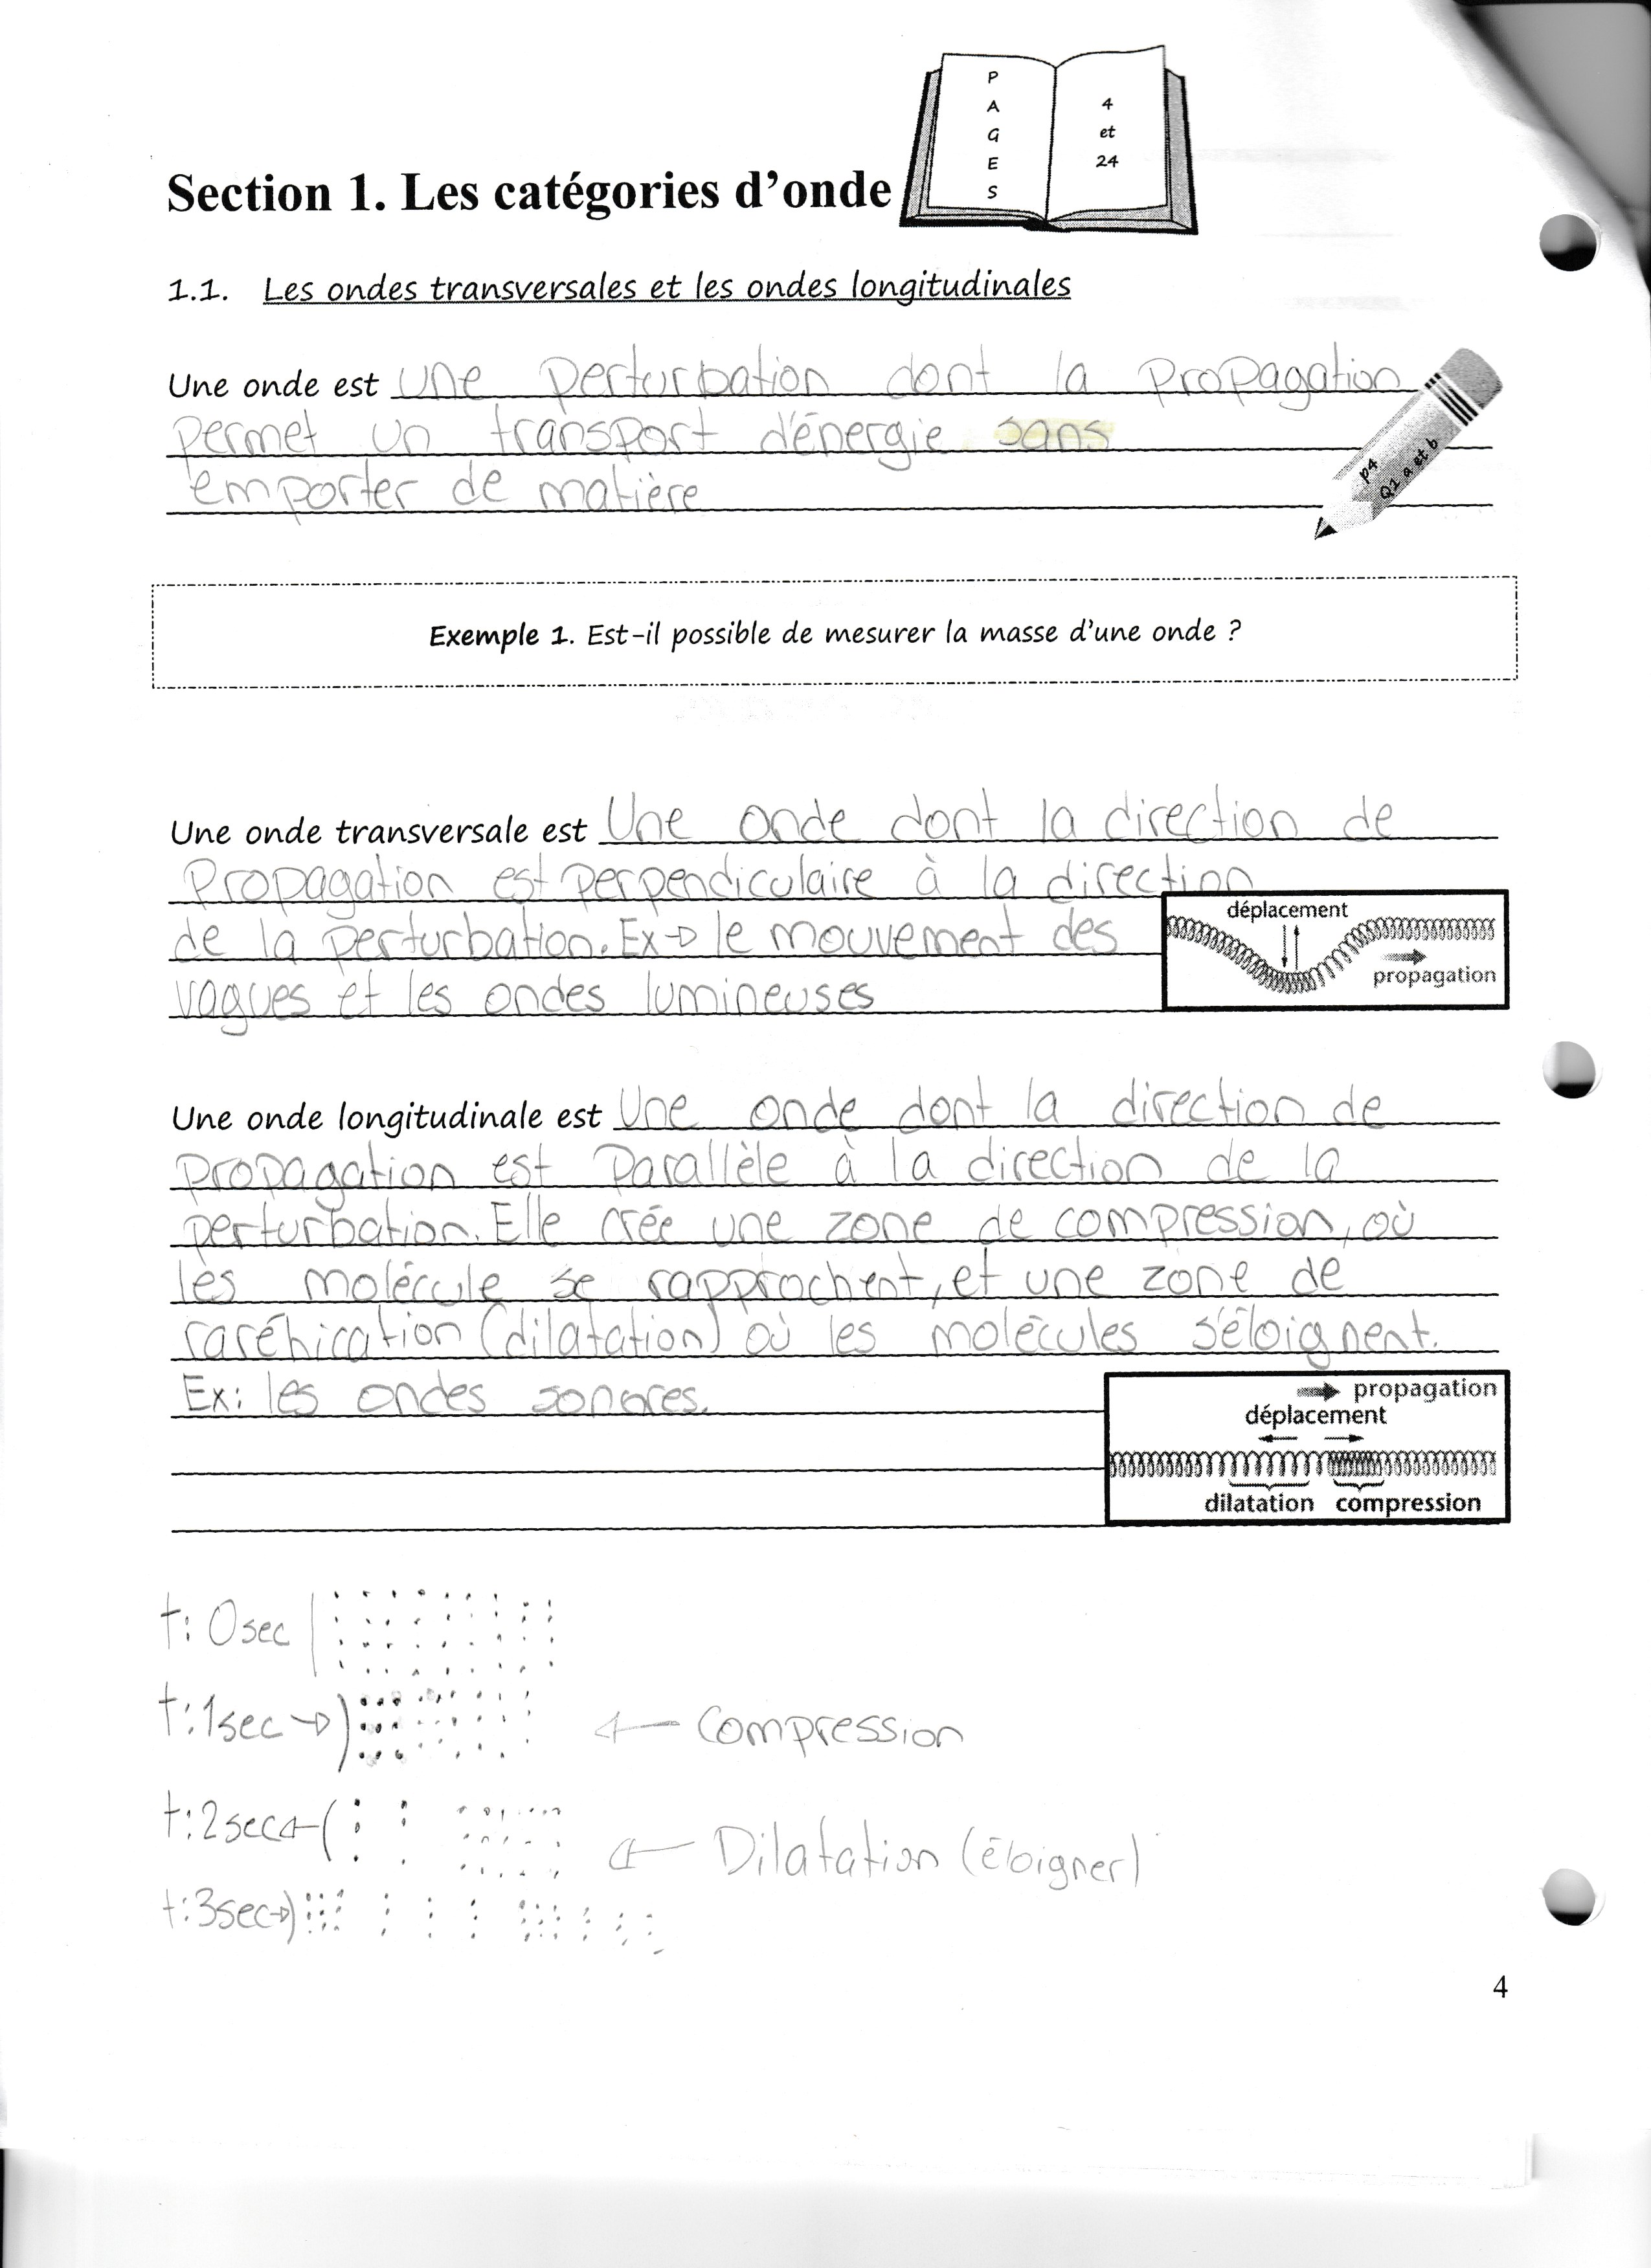 P
A
G
E
S
4
et
24
Section 1. Les catégories d'onde
1.1. Les ondes transversales et les ondes longitudinales
Une onde est une perturbation dont la propagation
permet un transport d'énergie sans
emporter de matière
p4
Q1 a et b
Exemple 1. Est-il possible de mesurer la masse d'une onde ?
Une onde transversale est Une onde dont la direction de
propagation est perpendiculaire à la direction
de la perturbation. Ex→ le mouvement des
vagues et les ondes lumineuses
déplacement
propagation
Une onde longitudinale est Une onde dont la direction de
propagation est Parallèle à la direction de la
perturbation. Elle crée une zone de compression, où
les molécule se rapprochent, et une zone de
(dilatation) où les molécules s'éloignent.
Ex: les ondes sonores.
propagation
déplacement
dilatation compression
t: 0sec
t: 1sec → ← Compression
t: 2sec ← ← Dilatation (éloigner)
t: 3sec →
4